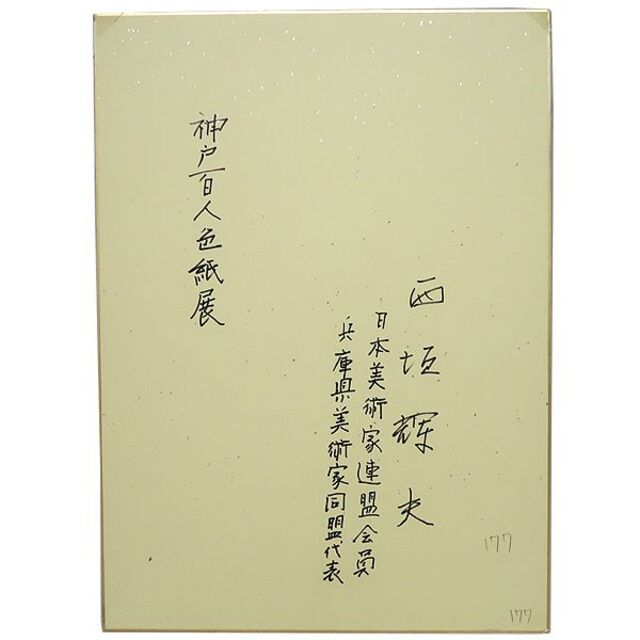 西垣輝夫
日本美術家連盟会員
兵庫県美術家同盟代表
神戸百人色紙展
177
177